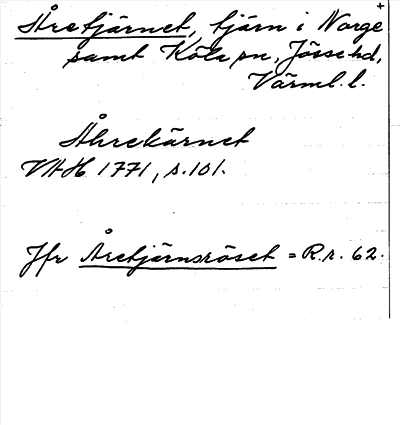 Åretjärnet, tjärn i Norge
samt Köla sn, Jösse hd,
Värml. l.
Åhrekärnet
VAH 1771, s. 101.
Jfr Åretjärnsröset = R.r. 62.